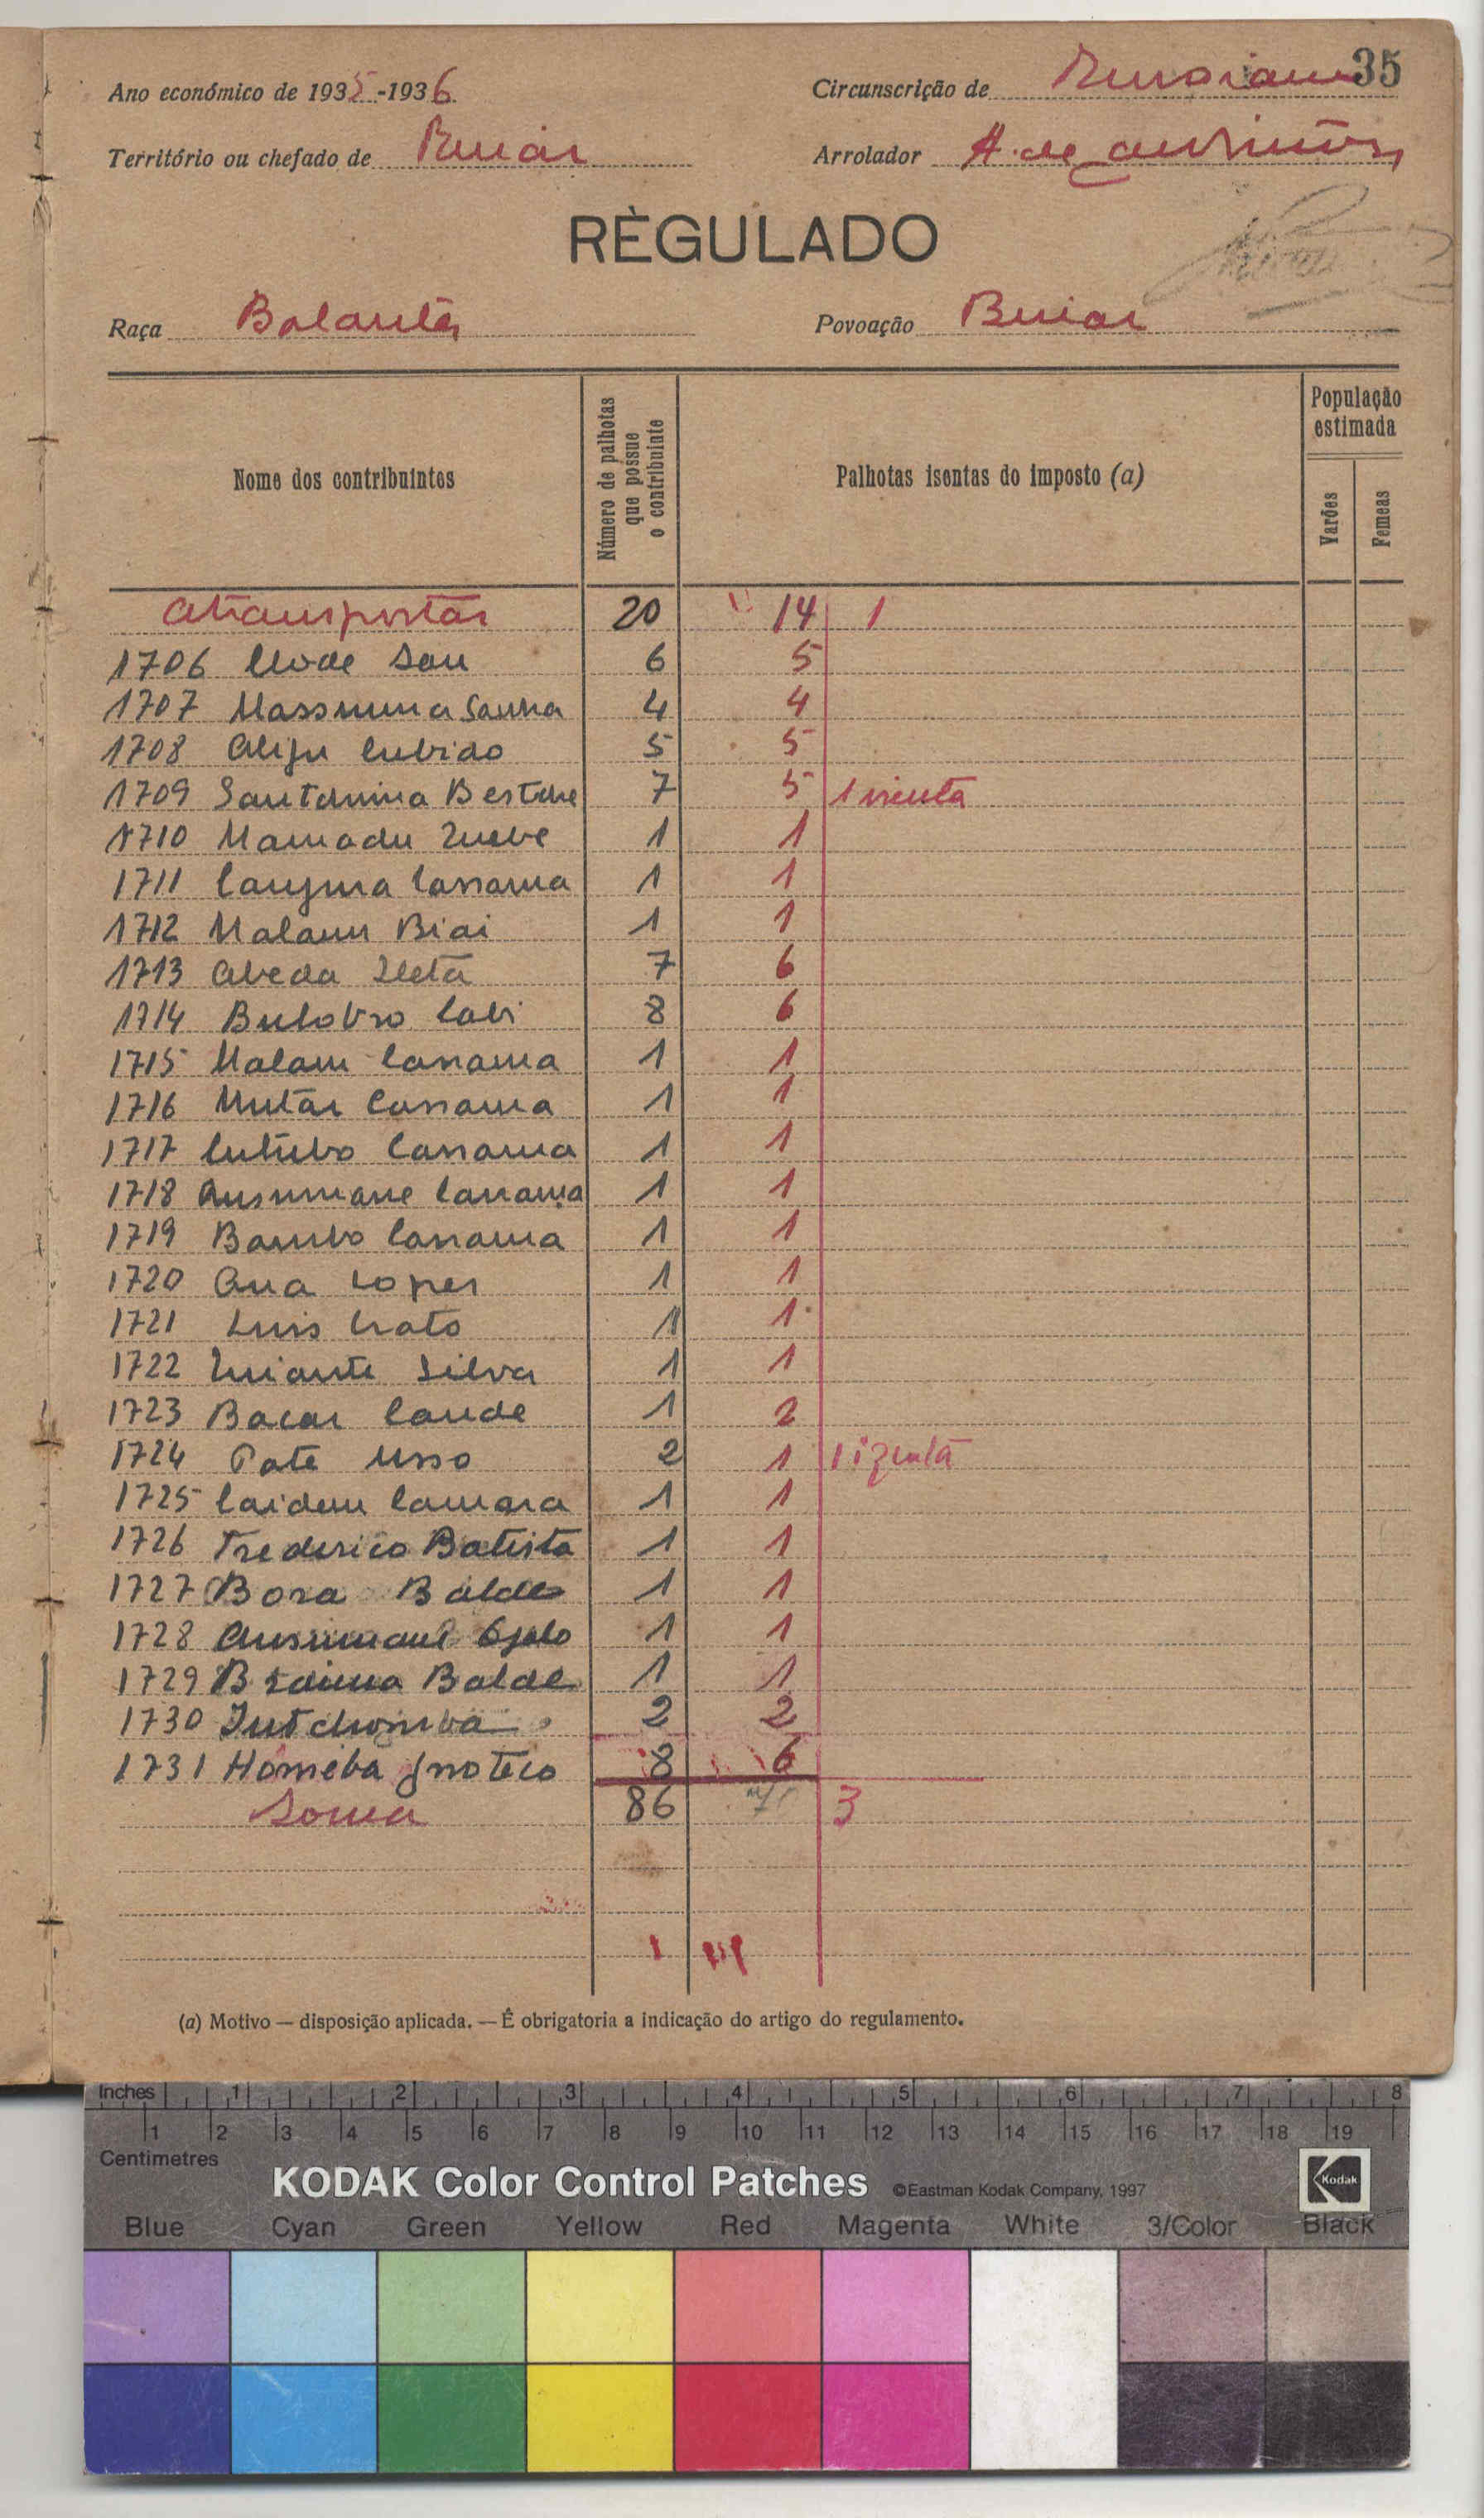 35
Ano económico de 1935-1936 Circunscrição de
Território ou chefado de Buiar Arrolador A. de
RÈGULADO
Raça Balantas Povoação Buiar
Nome dos contribuintes Número de palhotas que possue o contribuinte Palhotas isentas do imposto (a) População estimada Varões Femeas
Atransportar 20 14 1
1706 Sau 6 5
1707 Sanha 4 4
1708 Alifu 5 5
1709 7 5 1 isenta
1710 Mamadu 1 1
1711 Cassama 1 1
1712 Malam Biai 1 1
1713 7 6
1714 Cabi 8 6
1715 Malam Cassama 1 1
1716 Mutar Cassama 1 1
1717 Cutubo Cassama 1 1
1718 Ansumane Cassama 1 1
1719 Bambo Cassama 1 1
1720 Ana Lopes 1 1
1721 Luis Crato 1 1
1722 Silva 1 1
1723 Bacar Cande 1 2
1724 Pate 2 1 1 izenta
1725 Camara 1 1
1726 Frederico Batista 1 1
1727 Bora Balde 1 1
1728 Ansumane 1 1
1729 Braima Balde 1 1
1730 2 2
1731 8 6
Soma 86 3
(a) Motivo — disposição aplicada. — É obrigatoria a indicação do artigo do regulamento.
Inches 1 2 3 4 5 6 7 8
1 2 3 4 5 6 7 8 9 10 11 12 13 14 15 16 17 18 19
Centimetres
KODAK Color Control Patches ©Eastman Kodak Company, 1997 Kodak
Blue Cyan Green Yellow Red Magenta White 3/Color Black